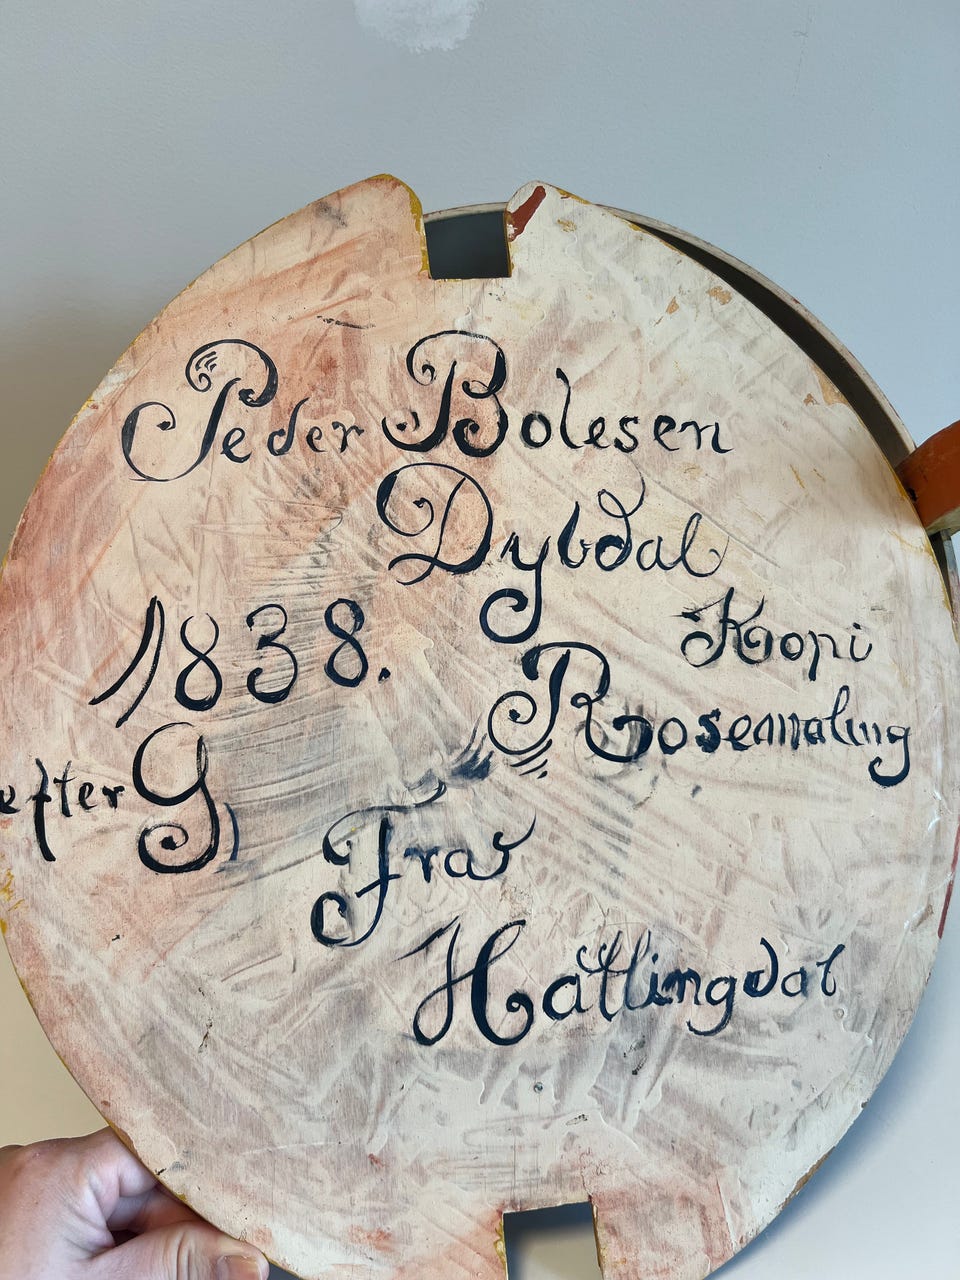 Peder Bolesen
Dybdal
1838.
Kopi
Rosemaling
efter G
Fra
Hallingdal